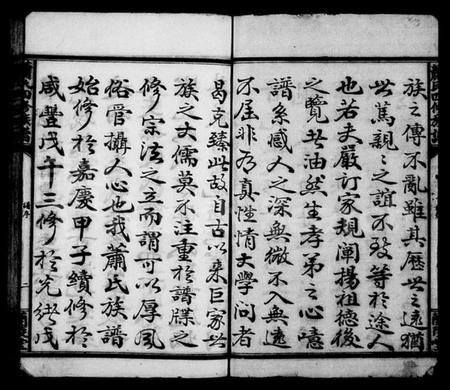 族之傳不亂雖其歷世之遠猶
此篤親之誼不致等於途人
也若夫嚴訂家規闡揚祖德後
之覽者油然生孝弟之心噫
譜系感人之深無微不入無遠
不屆非有真性情大學問者
曷克臻此故自古以來巨家世
族之大儒莫不注重於譜牒之
修宗法之立而謂可以厚風
俗管攝人心也我蕭氏族譜
始修於嘉慶甲子續修於
咸豐戊午三修於光緒戊
譜序
二